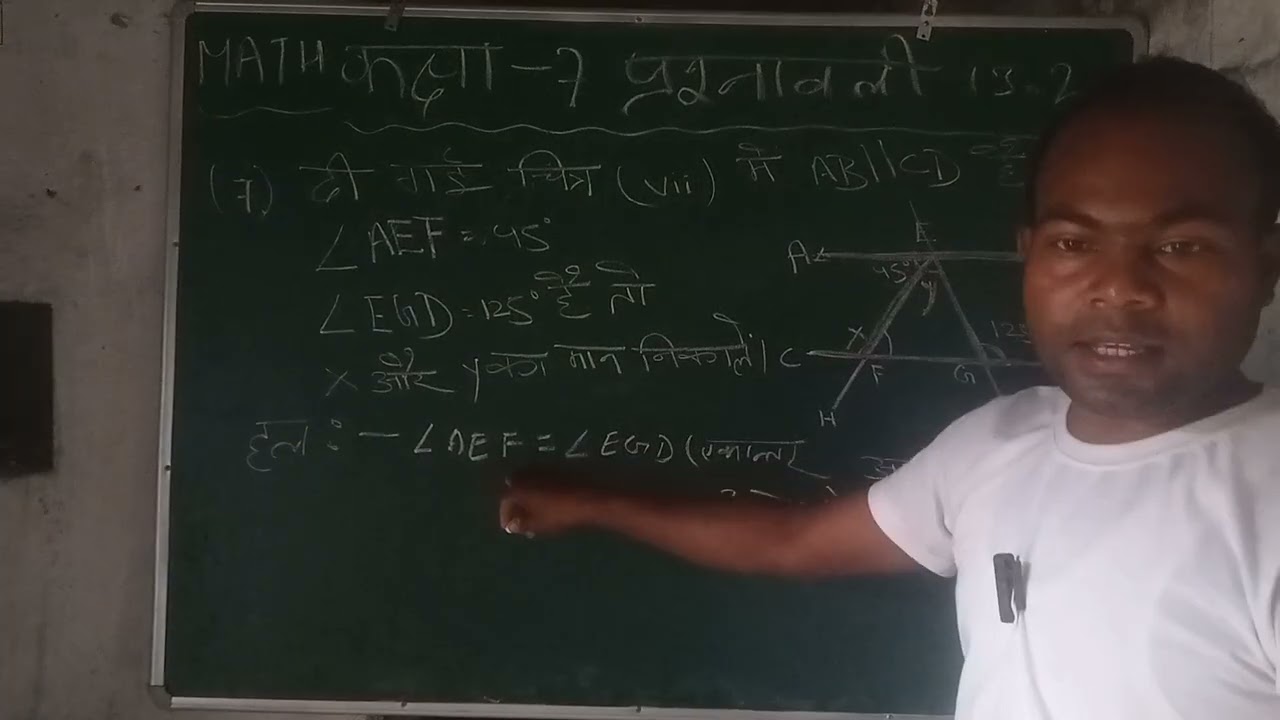 MATH कक्षा - 7 प्रश्नावली 15.2
(7) दी गई चित्र (vii) में AB||CD
∠AEF = 45°
∠EGD = 125° है तो
x और y का मान निकालें।
हल :- ∠AEF = ∠EGD (एकान्तर
E
A
45°
y
x
125
C
F
G
H